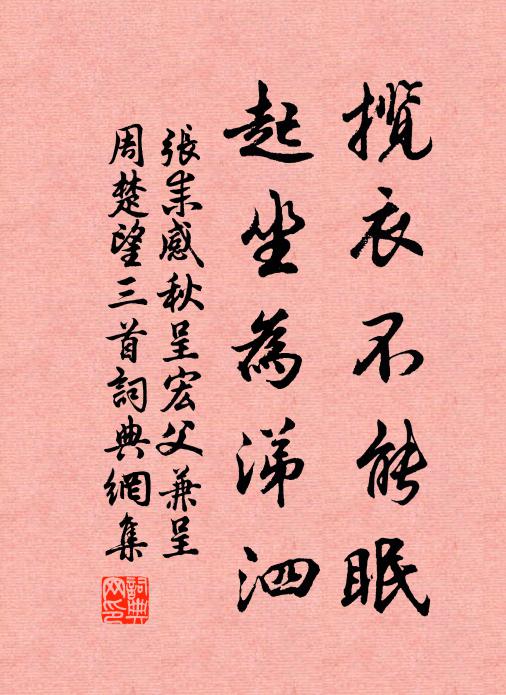 攬衣不能眠
起坐為涕泗
張耒感秋呈宏父兼呈
周楚望三首詞典網集
詞典網印